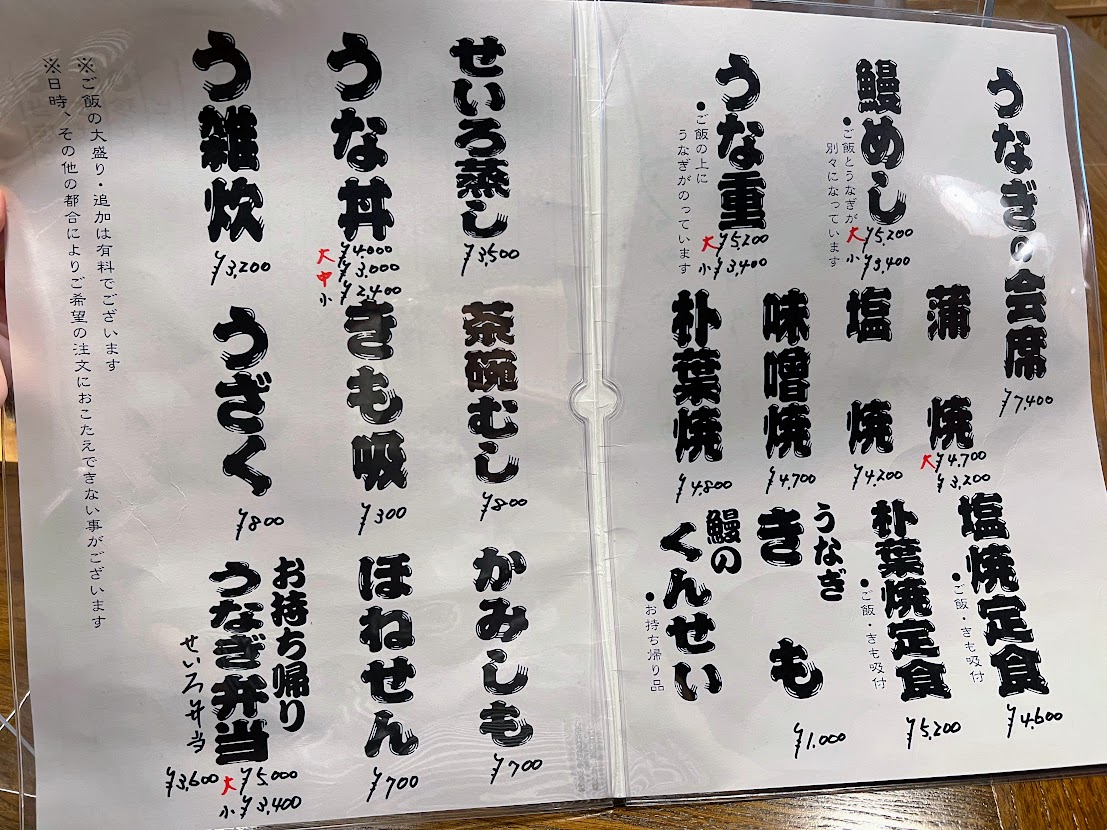 うなぎの会席
¥7,400
鰻めし
●ご飯とうなぎが
別々になっています
大 ¥5,200
小 ¥3,400
うな重
●ご飯の上に
うなぎがのっています
大 ¥5,200
小 ¥3,400
蒲焼
大 ¥4,700
¥3,200
塩焼
¥4,200
味噌焼
¥4,700
朴葉焼
¥4,800
塩焼定食
●ご飯・きも吸付
¥4,600
朴葉焼定食
●ご飯・きも吸付
¥5,200
うなぎ
きも
¥1,000
鰻の
くんせい
●お持ち帰り品
せいろ蒸し
¥3,500
うな丼
大 ¥4,000
中 ¥3,000
小 ¥2,400
う雑炊
¥3,200
茶碗むし
¥800
きも吸
¥300
うざく
¥800
かみしも
¥700
ほねせん
¥700
お持ち帰り
うなぎ弁当
大 ¥5,000
小 ¥3,400
せいろ弁当
¥3,600
※ご飯の大盛り・追加は有料でございます
※日時、その他の都合によりご希望の注文におこたえできない事がございます